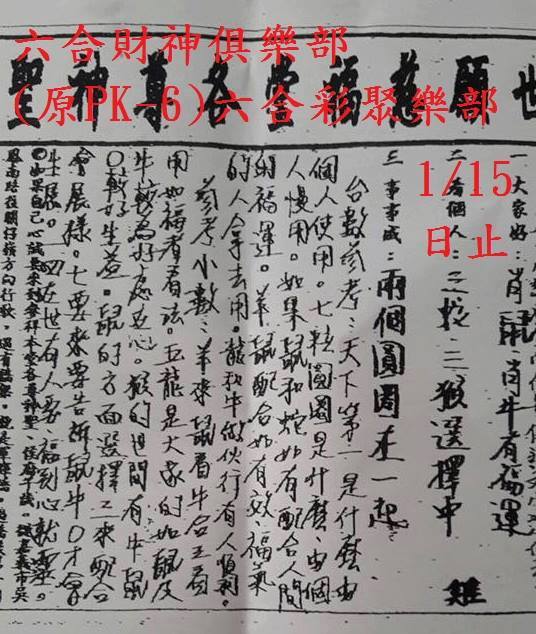 六合財神俱樂部
(原PK-6)六合彩聚樂部
1/15
日止
世願慈福堂各尊神聖
一 大家好:肖鼠、肖牛有福運
二 看個人:之蛇、三猴選擇中 雞
三 事事成:兩個圓圈在一起
台數參考:天下第一是什麼、由
個人使用。七粒圓圈是什麼、由個
人慢用。如果鼠和蛇如有配合人間
的福運。羊鼠配合如有效、福氣
的人拿去用。龍和牛做伙行有人順利。
參考小數:羊來鼠看牛合五有
用如福者看法。五龍是大家的如鼠及
牛較為好 在心。猴的世間有牛鼠
0較好生益。鼠的方面選擇二來配合
會展樣。七要來要告訴鼠牛0才會
生展。一四在世有人要福到心就
如果自己心誠 來到 本堂各尊神聖